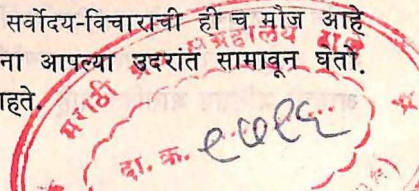 सर्वोदय-विचाराची ही च मौज आहे
ना आपल्या उदरांत सामावून घेतो.
मराठी ग्रंथ संग्रहालय
हते.
दा. क्र.